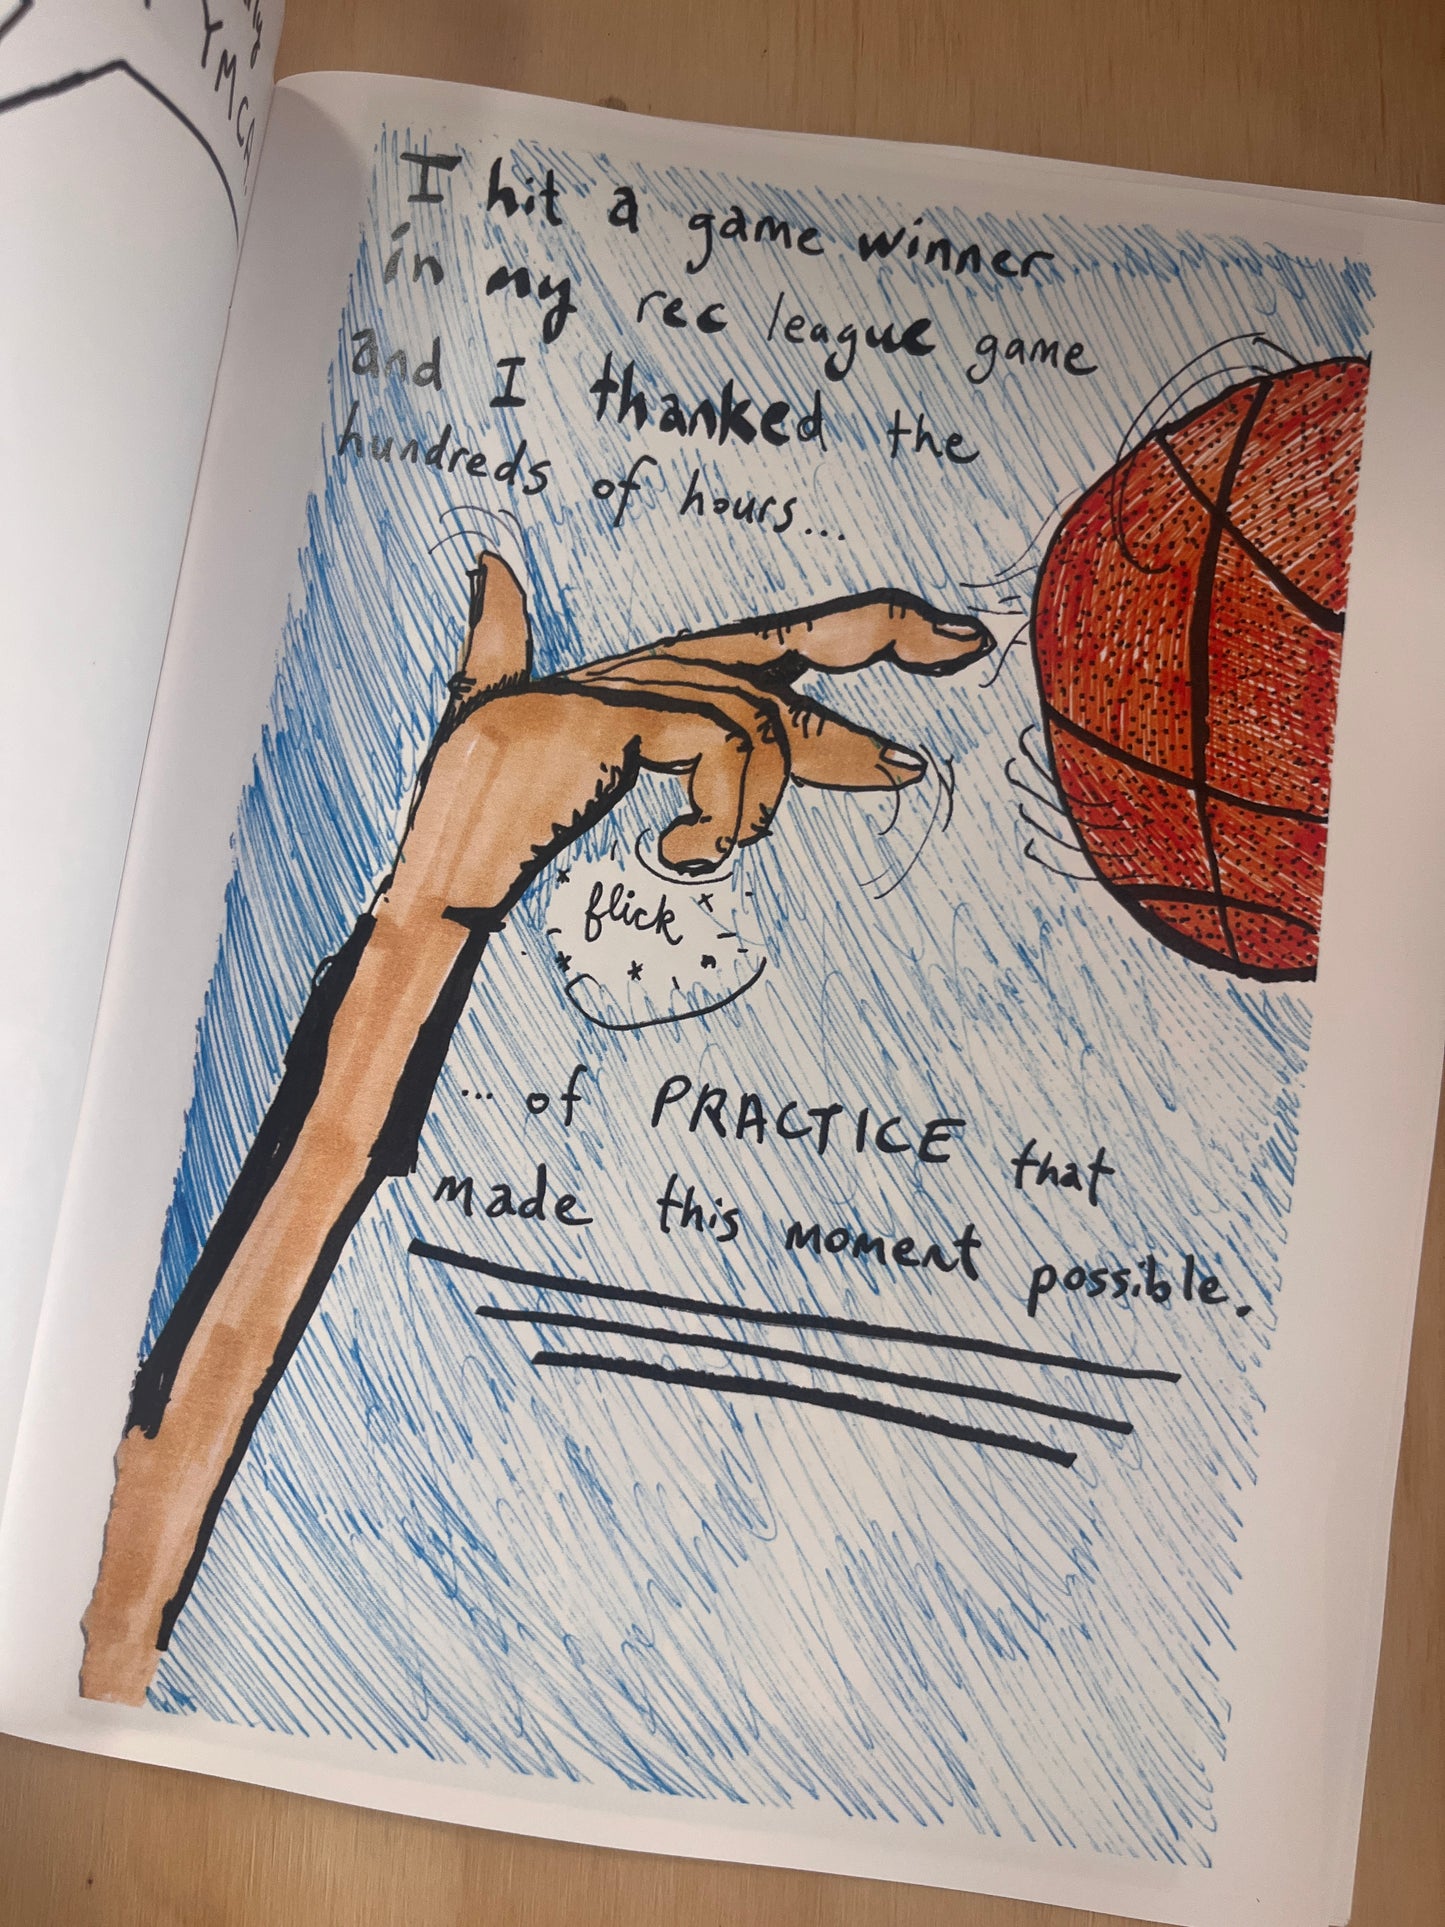 YMCA
I hit a game winner
in my rec league game
and I thanked the
hundreds of hours...
flick
... of PRACTICE that
made this moment possible.